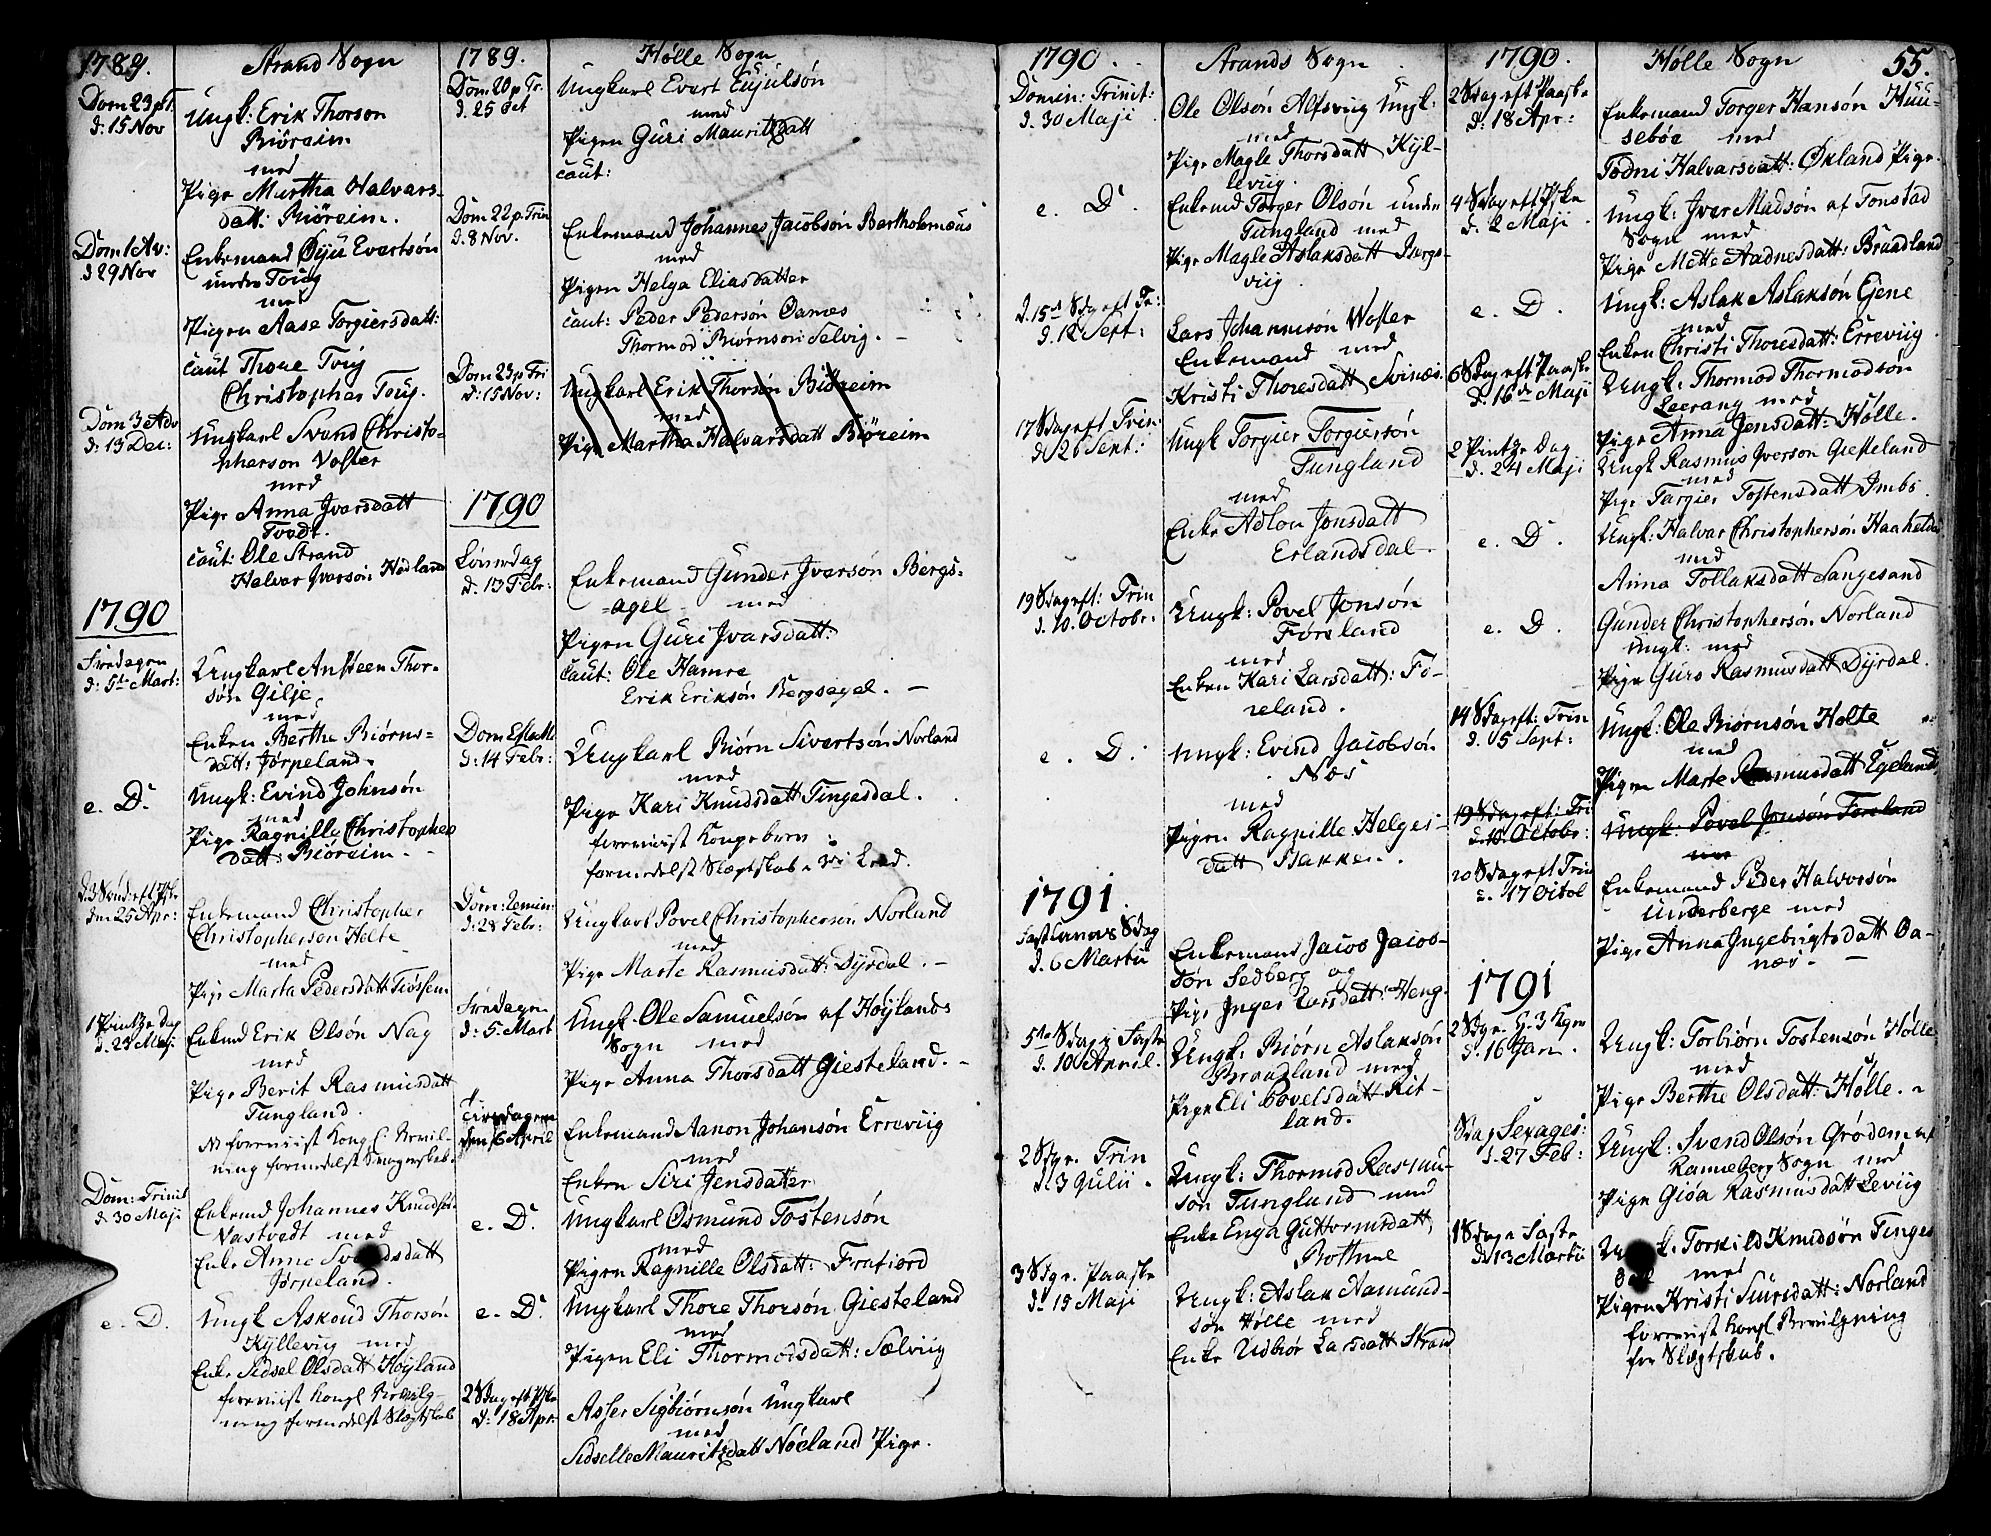 1789.
Strand Sogn
Dom 23 p T.
d: 15 Nov
Ungk: Erik Thorson
Biöreim
med
Pige Martha Halvars-
datt: Biöreim.
Dom 1 Av:
d 29 Nov
Enkemand Öÿü Evertsön
under Toüg
med
Pigen Aase Torgiersdatt:
caut Thore Toüg
Christopher Toüg.
Dom 3 Adv
d: 13 Dec:
Ungkarl Svend Christo-
pherson Voster
med
Pige Anna Jvarsdatt
Tvodt.
caut: Ole Strand
Halvar Jversön Hedland
1790
Söndagen
d: 5te Mart:
Ungkarl Ansteen Thor-
sön Gilje
med
Enken Berthe Biörns-
datt: Jörpeland.
e. D.
Ungk: Evind Johnsön
med
Pige Ragnille Christopher
datt: Biöreim.
d. 3 Sönd: eft Pske
den 25 Apr:
Enkemand Christopher
Christopherson Holte
med
Pige Marta Pedersdatt Tiössem
1 Pintze Dag
d. 23 Maji
Enkmd Erik Olsön Nag
med
Pige Berit Rasmusdatt
Tungland.
NB foreviist Kongl: Bevil-
ning formedelst Svogerskab.
Dom: Trinit
d 30 Maji
Enkmd Johannes Knudsön
Nastvedt med
Enke Anne datt
Jörpeland.
e. D.
Ungk Askoud Thorsön
Kÿlleviig med
Enke Sidsel Olsdatt Höÿland
foreviist Kongl Bevilg-
ning formedelst Slægtskab
1789.
Hölle Sogn
Dom: 20 p Tr.
d. 25 Oct
Ungkarl Evert Eÿülsön
med
Pigen Guri Mauritzdatt
caut:
Dom 22 p. Trin
d. 8 Nov.
Enkemand Johannes Jacobsön Bartholomæus
med
Pigen Helga Eliasdatter
caut: Peder Pedersön Oanes
Thormod Biörnson Selvig. -
Dom 23 p Tri
d: 15 Nov:
Ungkarl Erik Thorsön Biöreim
med
Pige Martha Halvarsdatt Biöreim
1790
Löverdag
d. 13 Febr:
Enkemand Gunder Jversön Bergs-
-agel - med
Pigen Guri Jvarsdatt:
caut: Ole Hamre
Erik Eriksön Bergsagel. -
Dom: Esto Mi
d: 14 Febr:
Ungkarl Biörn Sivertsön Norland
med
Pige Kari Knudsdatt Tingesdal.
foreviist Kongebrev
formedelst Slægtskab i 3die Leed.
Dom: Remin:
d: 28 Febr:
Ungkarl Povel Christophersön Norland
med
Pige Marte Rasmusdatt: Dÿrdal. -
Söndagen
d: 5. Mart
Ungk Ole Samuelsön af Höÿlands
Sogn med
Pige Anna Thorsdatt Giesteland. -
Tirsdagen
den 6 April
Enkemand Aanon Johansön Erreviig
med
Enken Siri Jensdatter
e. D.
Ungkarl Osmund Tostensön
med
Pigen Ragnille Olsdatt: Frafiord
e. D.
Ungkarl Thore Thorsön Giesteland
med
Pigen Eli Thormodsdatt: Sælviig
2 Sdag eft Pske
d: 18 Apr
Asser Sigbiörnsön Ungkarl
med
Sidselle Mauritzdatt Nöeland Pige.
1790.
Strands Sogn
Domin: Trinit:
d. 30 Maji
Ole Olsön Alfsviig Ungk:
med
Pige Magle Thorsdatt Kÿl-
leviig.
e. D.
Enkemd Torger Olsön under
Tungland med
Pige Magle Aslaksdatt Bergs-
viig
d. 15de Sdg eft Tr:
d. 12 Sept:
Lars Johannesön Woster
Enkemand med
Kristi Thoresdatt Svines.
17 Sdag eft Trin
d. 26 Sept:
Ungk Torgier Torgiersön
Tungland
med
Enke Adlou Jonsdatt
Erlandsdal.
19 Sdag eft: Trin
d. 10. Octobr:
Ungk: Povel Jonsön
Försland
med
Enken Kari Larsdatt: Fo-
reland.
e. D.
Ungk: Evind Jacobsön
Næs
med
Pigen Ragnille Helges-
datt Bakken.
1791.
Fastlavns Sdag
d. 6 Martii
Enkemand Jacob Jacob-
sön Sedberg og
Pige Jnger Larsdatt: Heng.
5te Sdag i Faste
d. 10 Aprill.
Ungk: Biörn Aslaksön
Braadland med
Pige Eli Povelsdatt Rit-
land.
2 Sdgr. Trin
d. 3 Julii.
Ungk: Thormod Rasmu-
sön Tungland med
Enke Enga Guttormsdatt
Bothne
3 Sdgr. Paaske
d. 15 Maji
Ungk: Aslak Aamund-
sön Hölle med
Enke Udbiör Larsdatt Strand
1790.
Hölle Sogn
55.
2 Sdag eft Paaske
d: 18 Apr:
Enkemand Torger Hansön Huu-
seböe med
Todni Halvarsdatt: Økland Pige.
4 Sdag eft Pske
d. 2 Maji
Ungk: Jver Madsön af Tonstad
Sogn med
Pige Mette Aadnesdatt: Braadland
e. D.
Ungk: Aslak Aslaksön Ejene
med
Enken Christi Thoresdatt: Erreviig
6 Sdag eft Paaske
d. 16de Maji
Ungk: Thormod Thormodsön
Leerang med
Pige Anna Jensdatt: Hölle.
2 Pintze Dag
d. 24 Maji
Ungk Rasmus Jverson Giesteland
med
Pige Targier Tostensdatt Jmbs
e. D.
Ungk: Halvar Christophersön Haahelder
med
Anna Tollaksdatt Sangesand
e. D.
Gunder Christophersön Norland
Ungk: med
Pige Gurs Rasmusdatt Dÿrdal.
14 Sdag eft: Trin
d. 5 Sept:
Ungk: Ole Biörnsön Holte
med
Pigen Marte Rasmusdatt Egeland
19 Sdag eft: Tri
d. 10. Octobr:
Ungk: Povel Jonsön Foreland
med
20 Sdag eft Trin
d. 17 Octob
Enkemand Peder Halvorsön
Underberge med
Pige Anna Jngebrigtsdatt Oa-
næs. -
1791
2 Sdgr. H. 3 Kgr
d. 16 Jan.
Ungk: Torbiörn Tostensön Hölle
med
Pige Berthe Olsdatt: Hölle.
Sdag Sexages:
d. 27 Feb:
Ungk: Svend Olsön Grödem af
Ranneberg Sogn med
Pige Giöa Rasmusdatt Leviig
1 Sdag i Faste
d. 13 Martii
Torkild Knudsön Tinges
dal med
Pigen Kristi Siursdatt: Norland
foreviist Kongl Bevilgning
for Slægtskab.